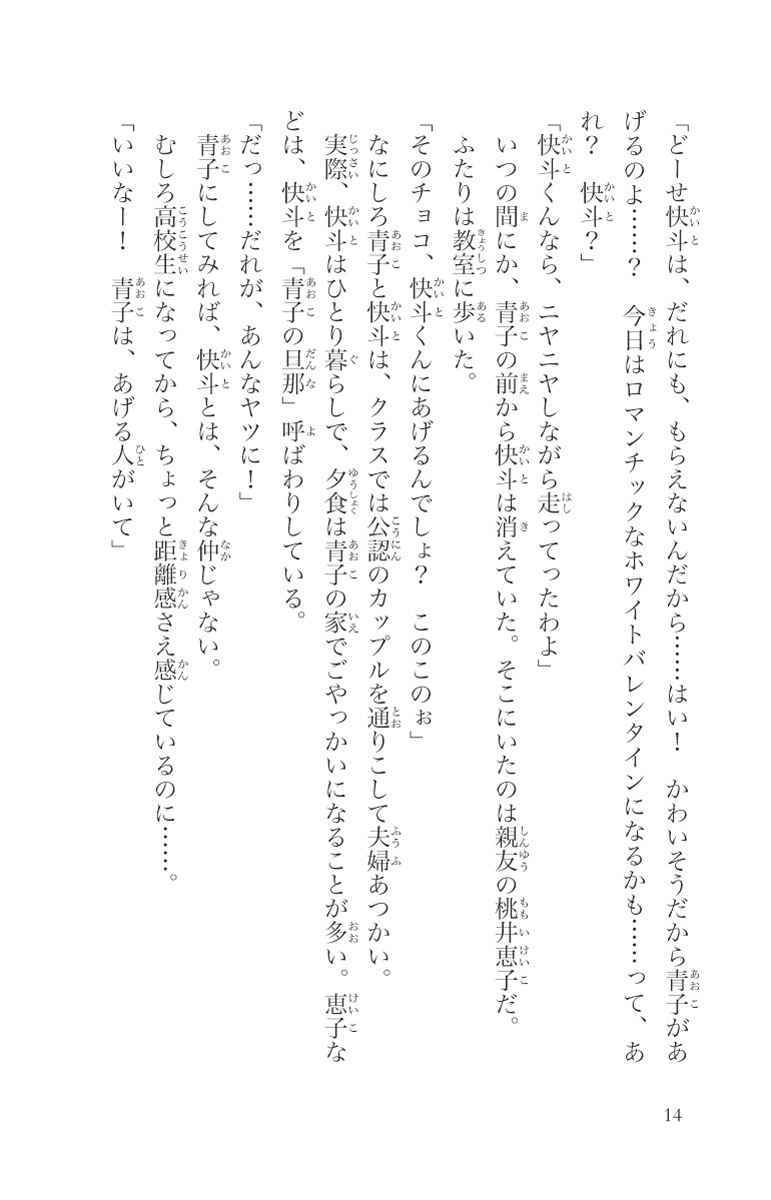 「どーせ快斗は、だれにも、もらえないんだから……はい！　かわいそうだから青子があ
げるのよ……？　今日はロマンチックなホワイトバレンタインになるかも……って、あ
れ？　快斗？」
「快斗くんなら、ニヤニヤしながら走ってったわよ」
　いつの間にか、青子の前から快斗は消えていた。そこにいたのは親友の桃井恵子だ。
　ふたりは教室に歩いた。
「そのチョコ、快斗くんにあげるんでしょ？　このこのぉ」
　なにしろ青子と快斗は、クラスでは公認のカップルを通りこして夫婦あつかい。
　実際、快斗はひとり暮らしで、夕食は青子の家でごやっかいになることが多い。恵子な
どは、快斗を「青子の旦那」呼ばわりしている。
「だっ……だれが、あんなヤツに！」
　青子にしてみれば、快斗とは、そんな仲じゃない。
　むしろ高校生になってから、ちょっと距離感さえ感じているのに……。
「いいなー！　青子は、あげる人がいて」
14